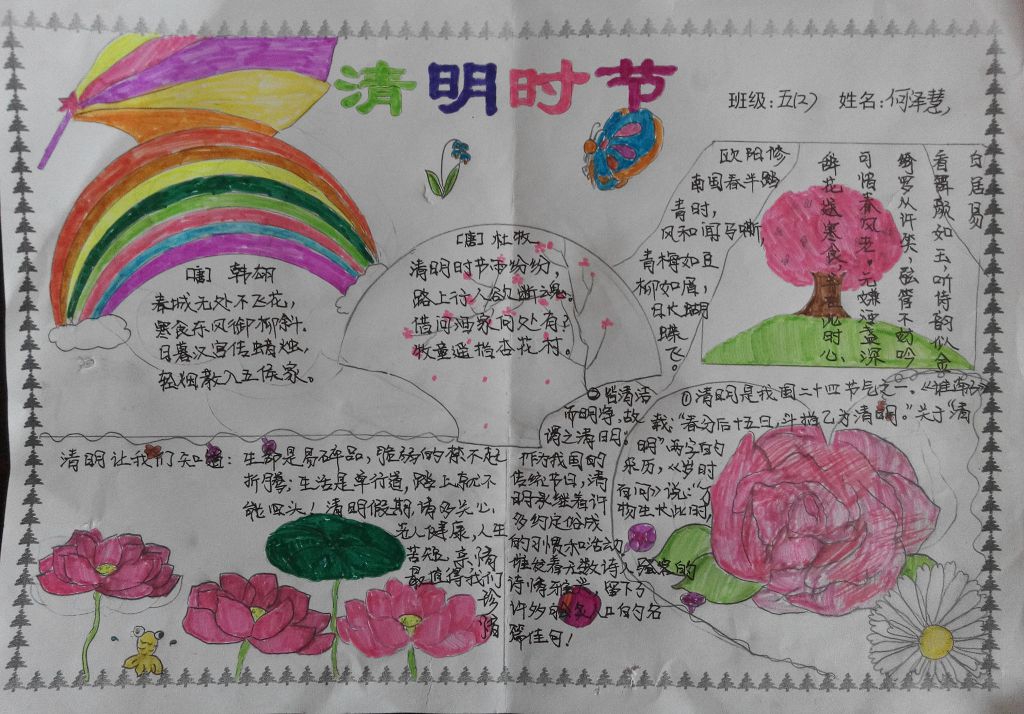 清明时节
班级:五(2) 姓名:何泽慧
[唐] 韩翃
春城无处不飞花,
寒食东风御柳斜.
日暮汉宫传蜡烛,
轻烟散入五侯家。
[唐] 杜牧
清明时节雨纷纷,
路上行人欲断魂。
借问酒家何处有?
牧童遥指杏花村。
欧阳修
南国春半踏
青时,
风和闻马嘶,
青梅如豆
柳如眉,
日长蝴
蝶飞。
白居易
香醉颜如玉,听侍韵似金
绮罗从许笑,弦管不妨吟
可惜春风老,无嫌酒盏深
辞花送寒食,并在此时心
①清明是我国二十四节气之一。《淮南子》
载:“春分后十五日,斗指乙为清明。”关于“清
明”两字的
来历,《岁时
百问》说:“万
物生长此时,
皆清洁
而明净,故
谓之清明。
作为我国的
传统节日,清
明承继着许
多约定俗成
的习惯和活动,
堆发着无数诗人骚客的
诗情雅兴,留下了
许多
的名
篇佳句!
清明让我们知道:生命是易碎品,脆弱的禁不起
折腾;生活是单行道,踏上就不
能回头!清明假期,请多关心
老人健康,人生
苦短,亲情
最值得我们
珍
惜